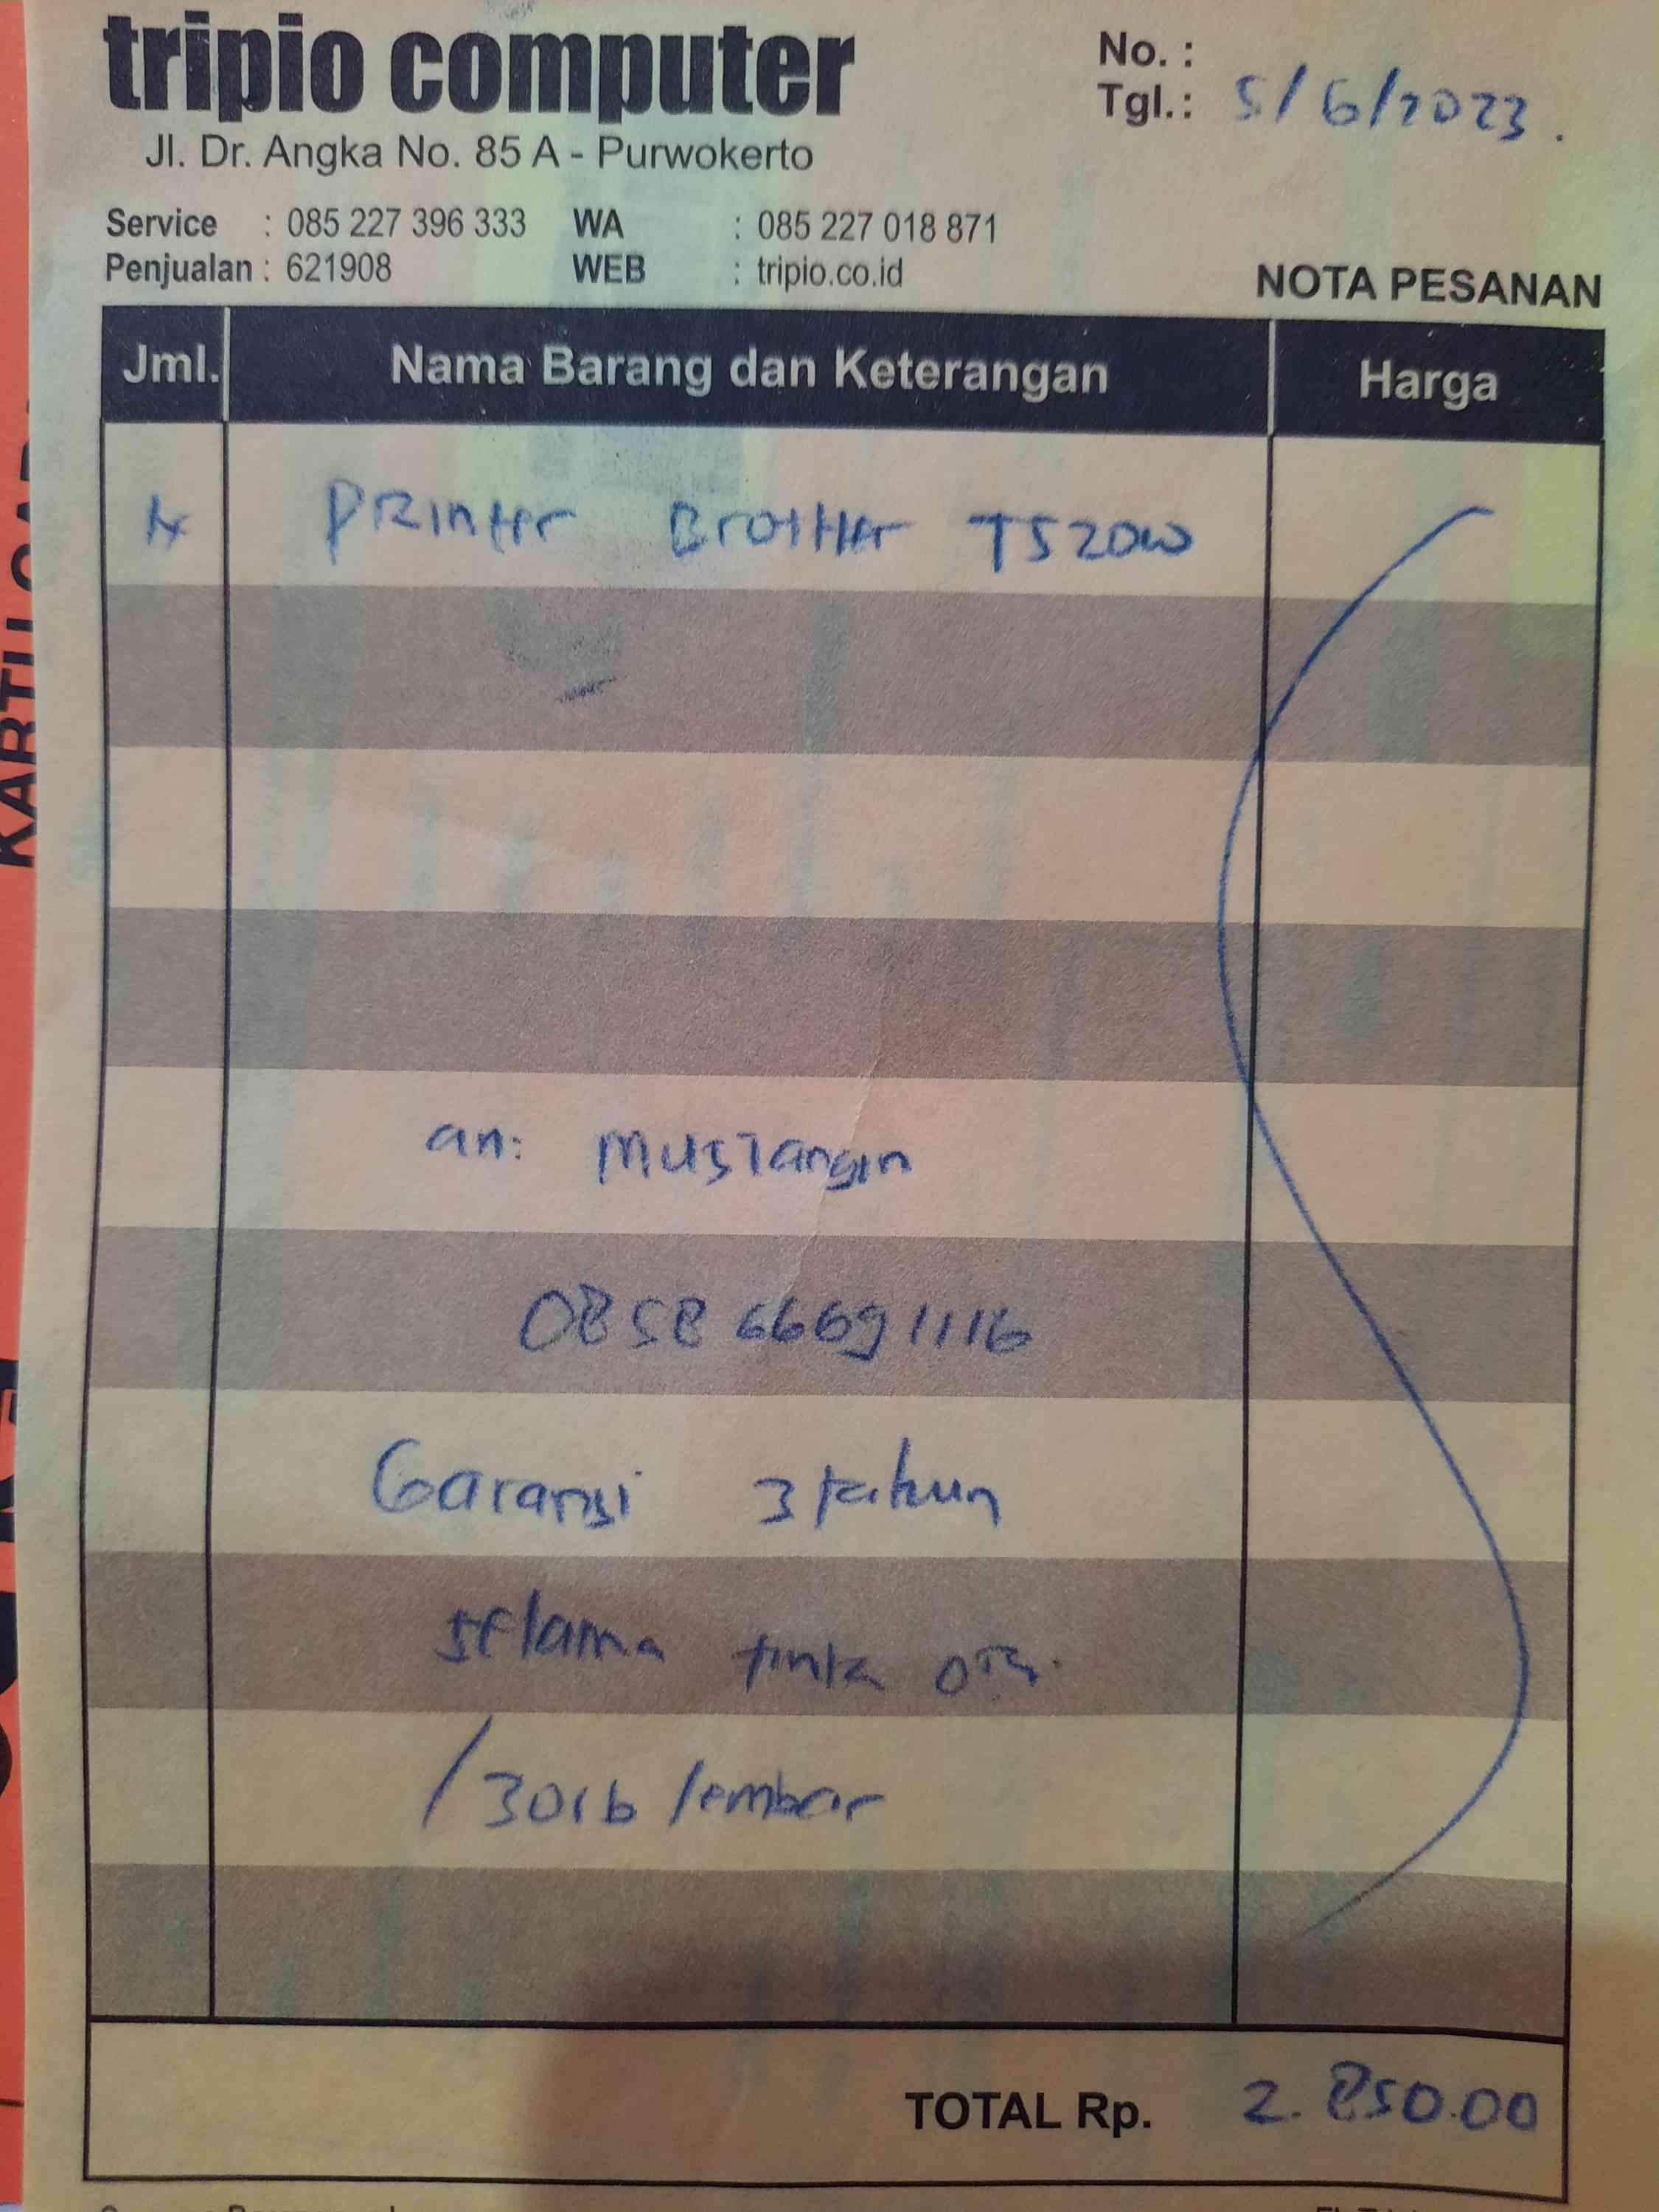 tripio computer
Jl. Dr. Angka No. 85 A - Purwokerto
No. :
Tgl.: 5/6/2023.
Service : 085 227 396 333 WA : 085 227 018 871
Penjualan : 621908 WEB : tripio.co.id
NOTA PESANAN
Jml. Nama Barang dan Keterangan Harga
Printer Brother T520W
an: Mustangin
0858 66691116
Garansi 3 tahun
selama tinta ori.
/30rb lembar
TOTAL Rp. 2.850.00
KARTU